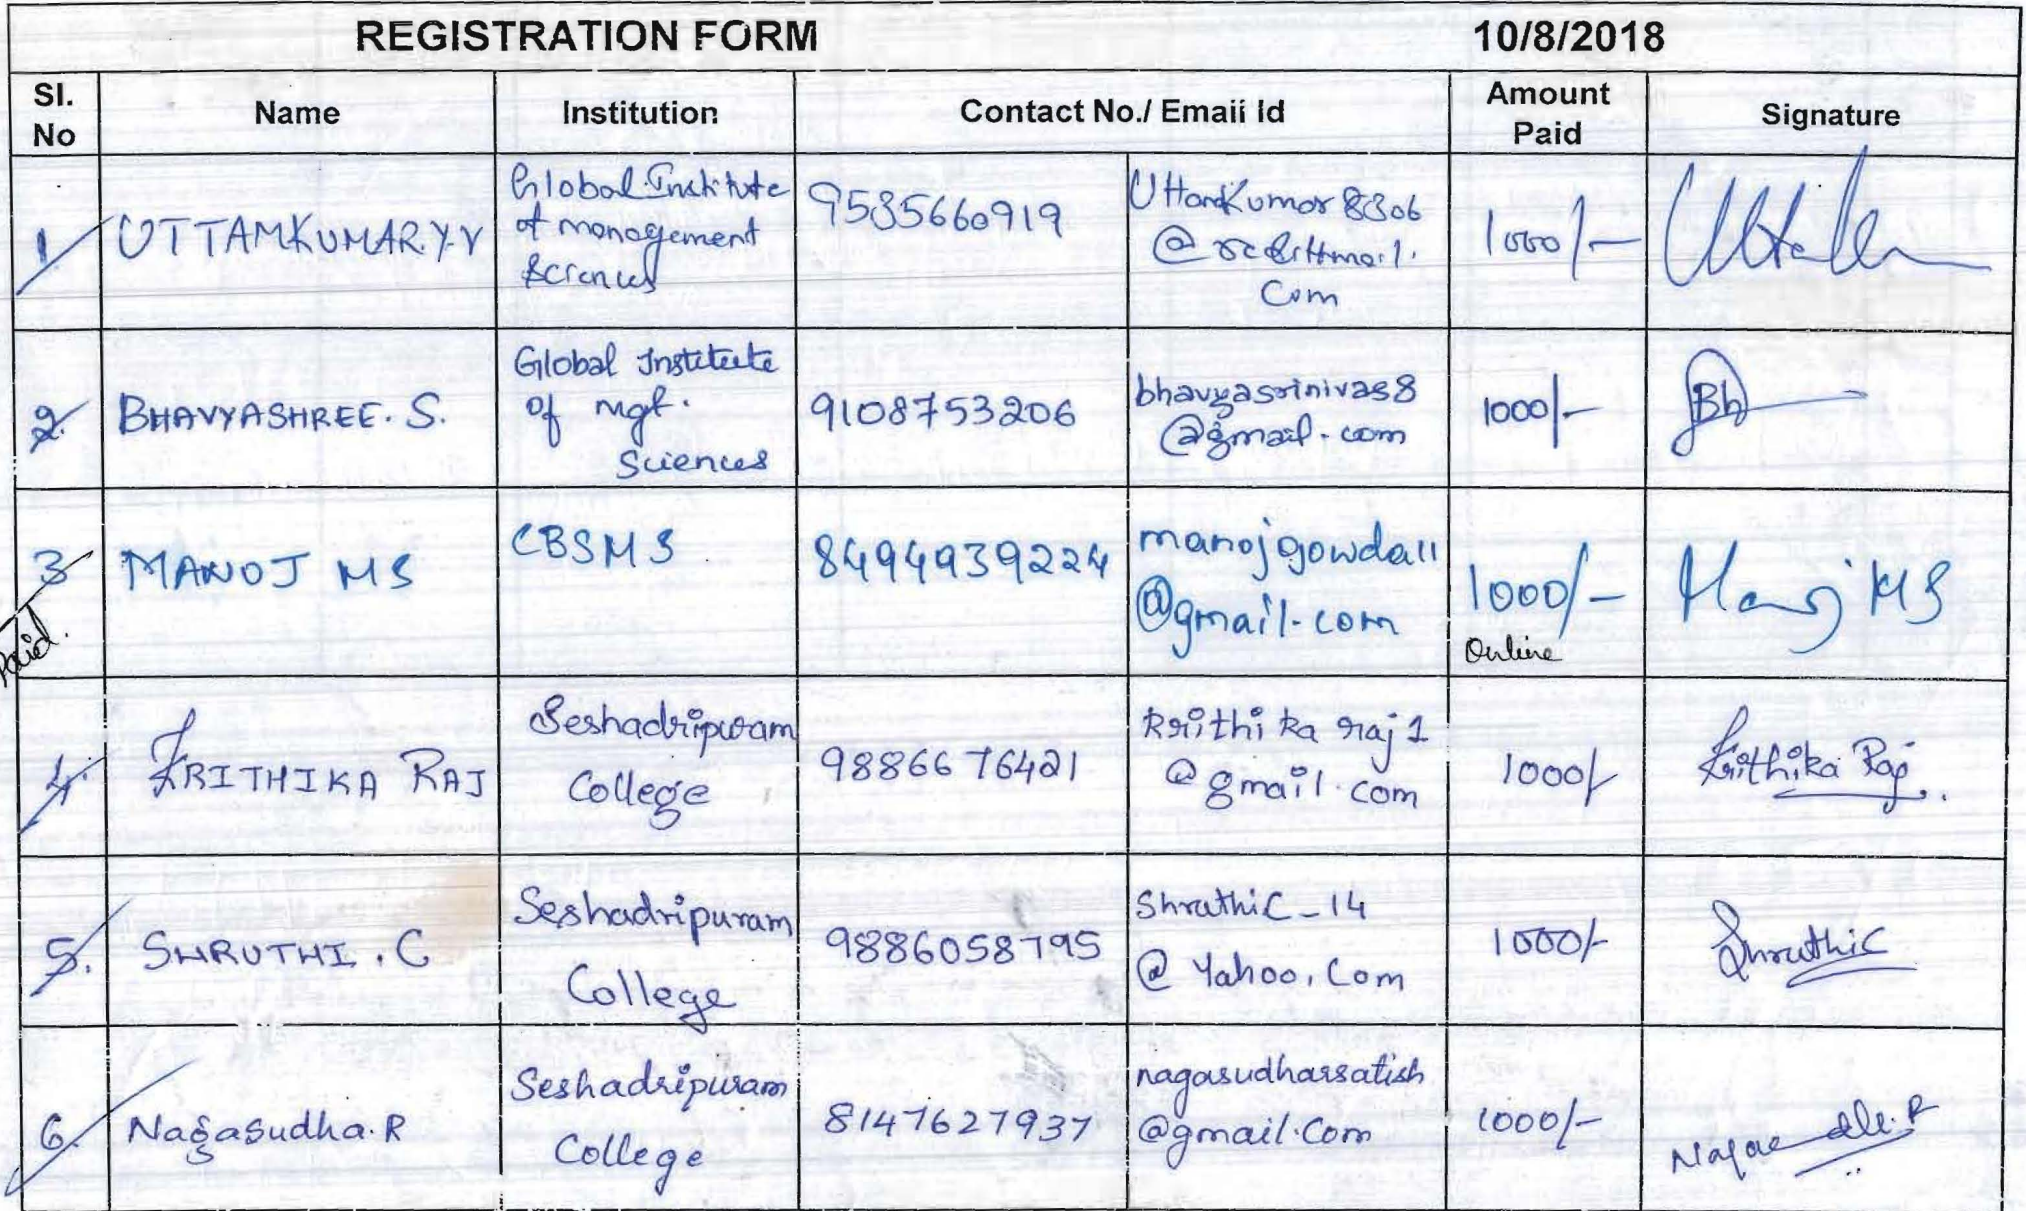 REGISTRATION FORM 10/8/2018
Sl. No Name Institution Contact No./ Email Id Amount Paid Signature
1 UTTAMKUMAR.Y.V Global Institute of management Sciences 9535660919 UttamKumar8306 @rediffmail.com 1000/-
2. BHAVYASHREE. S. Global Institute of mgt. Sciences 9108753206 bhavyasrinivas8 @gmail.com 1000/- Bh
3 MANOJ MS CBSMS 8494939224 manojgowda11 @gmail.com 1000/- Manoj MS
Paid. Online
4. KRITHIKA RAJ Seshadripuram College 9886676421 krithika raj1 @gmail.com 1000/- Krithika Raj.
5. SHRUTHI . C Seshadripuram College 9886058795 ShruthiC_14 @ Yahoo.Com 1000/- ShruthiC
6. Nagasudha.R Seshadripuram College 8147627937 nagasudharsatish @gmail.Com 1000/-